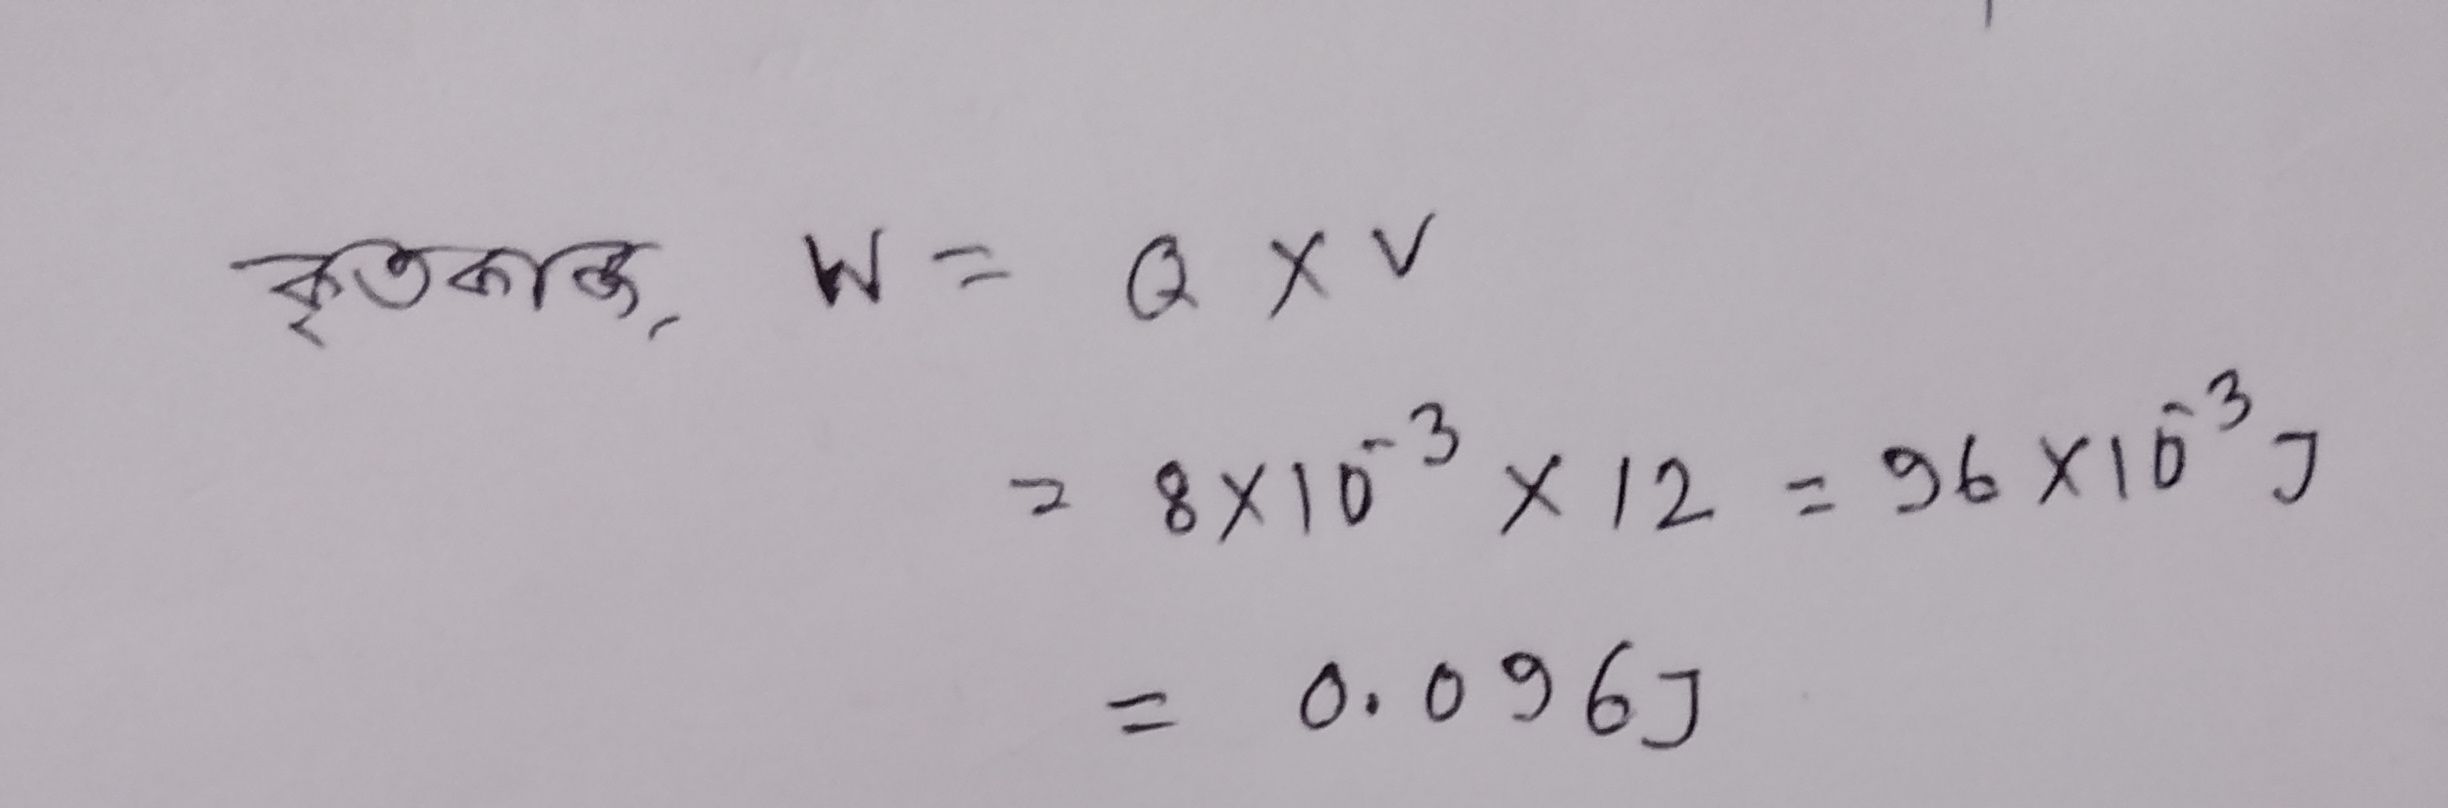 কৃতকাজ, W = Q × V
= 8×10⁻³ × 12 = 96 ×10⁻³ J
= 0.096J